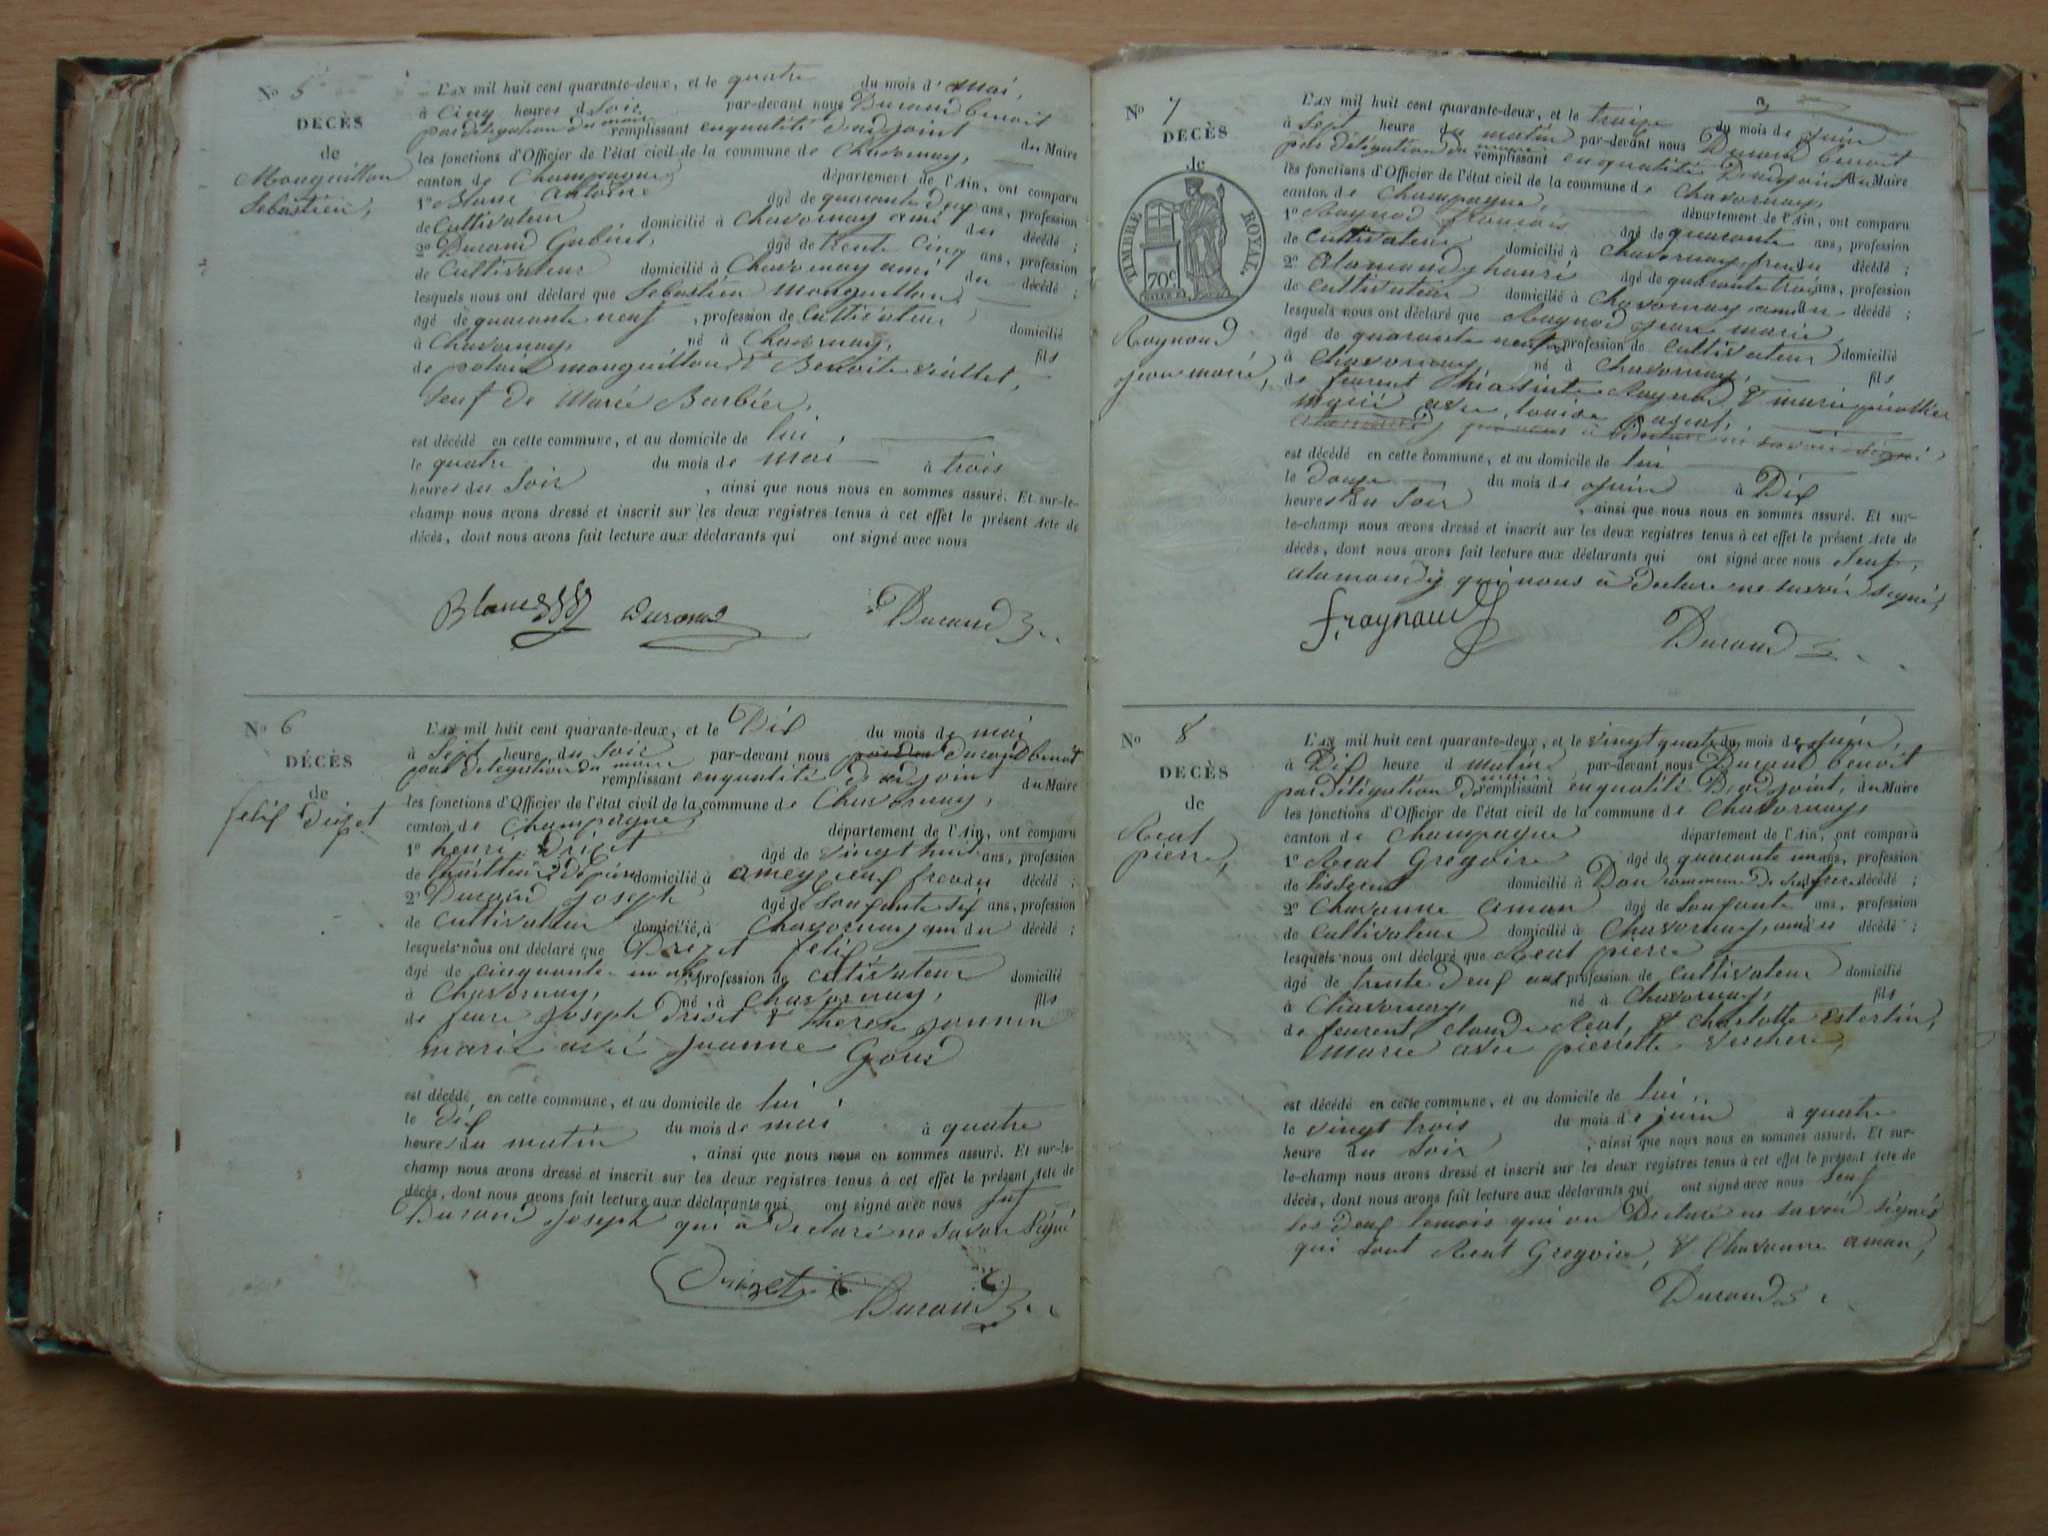 No 5
DECÈS
de
Monguillon
Sebastien,
L'AN mil huit cent quarante-deux, et le quatre du mois d' mai,
à Cinq heures d Soir par-devant nous Durand benoit
par délégation du maire remplissant enqualité d'adjoint du Maire
les fonctions d'Officier de l'état civil de la commune de Chavornay,
canton de Champagne département de l'Ain, ont comparu
1o Blanc Antoine âgé de quarante deux ans, profession
de Cultivateur domicilié à Chavornay ami du décédé ;
2o Durand Gabriel, âgé de trente Cinq ans, profession
de Cultivateur domicilié à Chavornay ami du décédé ;
lesquels nous ont déclaré que Sebastien Monguillon,
âgé de quarante neuf , profession de Cultivateur domicilié
à Chavornay, né à Chavornay, fils
de monguillon & Benoite viallet,
veuf de Marie Barbier,
est décédé en cette commune, et au domicile de lui,
le quatre du mois de mai à trois
heures du Soir , ainsi que nous nous en sommes assuré. Et sur-le-
champ nous avons dressé et inscrit sur les deux registres tenus à cet effet le présent Acte de
décès, dont nous avons fait lecture aux déclarants qui ont signé avec nous
Blanc Durand Durand
No 6
DÉCÈS
de
felix Drizet
L'AN mil huit cent quarante-deux, et le Dix du mois de mai
à Sept heure du Soir par-devant nous Durand benoit
par delegation du maire remplissant enqualité d'adjoint du Maire
les fonctions d'Officier de l'état civil de la commune de Chavornay,
canton de Champagne département de l'Ain, ont comparu
1o henri Drizet âgé de vingt huit ans, profession
de domicilié à ameyzieux du décédé ;
2o Durand Joseph âgé de ans, profession
de Cultivateur domicilié à Chavornay ami du décédé ;
lesquels nous ont déclaré que Drizet felix,
âgé de cinquante profession de cultivateur domicilié
à Chavornay, né à Chavornay, fils
de Joseph Drizet & therese jannin
marié avec jeanne Goud
est décédé en cette commune, et au domicile de lui
le dix du mois de mai à quatre
heures du matin , ainsi que nous nous en sommes assuré. Et sur-le-
champ nous avons dressé et inscrit sur les deux registres tenus à cet effet le présent Acte de
décès, dont nous avons fait lecture aux déclarants qui ont signé avec nous
Durand Joseph qui a declaré ne Savoir Signé
Drizet Durand
No 7
DECÈS
de
TIMBRE ROYAL.
70c
Raynaud
jean marie,
L'AN mil huit cent quarante-deux, et le treize du mois de juin
à Sept heure du matin par-devant nous Durand benoit
par délégation du maire remplissant enqualité D'adjoint du Maire
les fonctions d'Officier de l'état civil de la commune de Chavornay,
canton de Champagne, département de l'Ain, ont comparu
1o Raynod francois âgé de quarante ans, profession
de Cultivateur domicilié à Chavornay frere du décédé ;
2o Alamandy henri âgé de quarante trois ans, profession
de Cultivateur domicilié à Chavornay ami du décédé ;
lesquels nous ont déclaré que Raynod jean marie
âgé de quarante neuf, profession de Cultivateur domicilié
à Chavornay, né à Chavornay, fils
de feurent hiasinte Raynod & marie
marié avec louise pagent,
est décédé en cette commune, et au domicile de lui
le douze du mois de juin à Dix
heures du Soir , ainsi que nous nous en sommes assuré. Et sur-
le-champ nous avons dressé et inscrit sur les deux registres tenus à cet effet le présent Acte de
décès, dont nous avons fait lecture aux déclarants qui ont signé avec nous
alamandy qui nous à Declare ne savoir signé,
f. raynaud Durand
No 8
DECÈS
de
Reat
pierre,
L'AN mil huit cent quarante-deux, et le vingt quatre du mois de juin,
à Dix heure d matin par-devant nous Durand benoit
par Délégation du maire remplissant enqualité D'adjoint, du Maire
les fonctions d'Officier de l'état civil de la commune de Chavornay,
canton de Champagne département de l'Ain, ont comparu
1o Reat Gregoire âgé de quarante un ans, profession
de tisserand domicilié à Don commune de frere décédé ;
2o Chavanne aman âgé de Soixante ans, profession
de Cultivateur domicilié à Chavornay, ami du décédé ;
lesquels nous ont déclaré que Reat pierre
âgé de trente deux ans profession de Cultivateur domicilié
à Chavornay, né à Chavornay, fils
de feurent, claude Reat, & Charlotte Estertin,
Marie avec pierrette
est décédé en cette commune, et au domicile de lui
le vingt trois du mois de juin à quatre
heure du Soir , ainsi que nous nous en sommes assuré. Et sur-
le-champ nous avons dressé et inscrit sur les deux registres tenus à cet effet le présent Acte de
décès, dont nous avons fait lecture aux déclarants qui ont signé avec nous
les deux temois qui on Déclaré ne savoir signés
qui sont Reat Gregoire, & Chavanne aman,
Durand